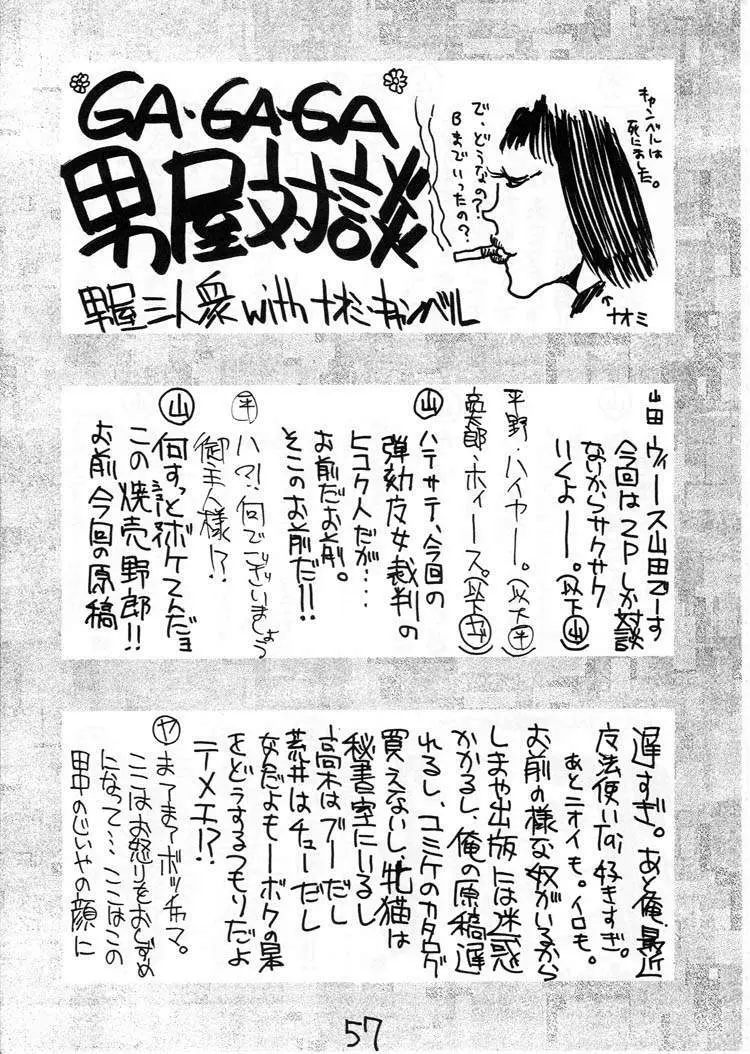 GA・GA・GA
男屋対談
男屋三人衆withナオミ・キャンベル
キャンベルは
死にました。
で、どうなの?
Bまでいったの?
↑
ナオミ
山田 ヴィース山田でーす
今回は2Pしか対談
ないからサクサク
いくよー。(以下山)
平野・ハイヤー。(以下平)
・ホィース。(以下ヤ)
山 ハテサテ、今回の
弾劾友女裁判の
ヒコク人だが‥‥
お前だお前。
そこのお前だ!!
平 ハ?!何でございましょう
御主人様!?
山 何すっとボケてんだョ
この焼売野郎!!
お前今回の原稿
遅すぎ。あと俺、最近
友法使いTai好きすぎ。
あとニオイも。イロも。
お前の様な奴がいるから
しまや出版には迷惑
かかるし、俺の原稿遅
れるし、コミケのカタログ
買えないし、牝猫は
秘書室にいるし
高木はブーだし
荒井はチューだし
なんだよもーボクの暴
をどうするつもりだよ
テメエ!?
ヤ まてまてボッチャマ。
ここはお怒りをおしずめ
になって…ここはこの
田中のじいやの顔に
57